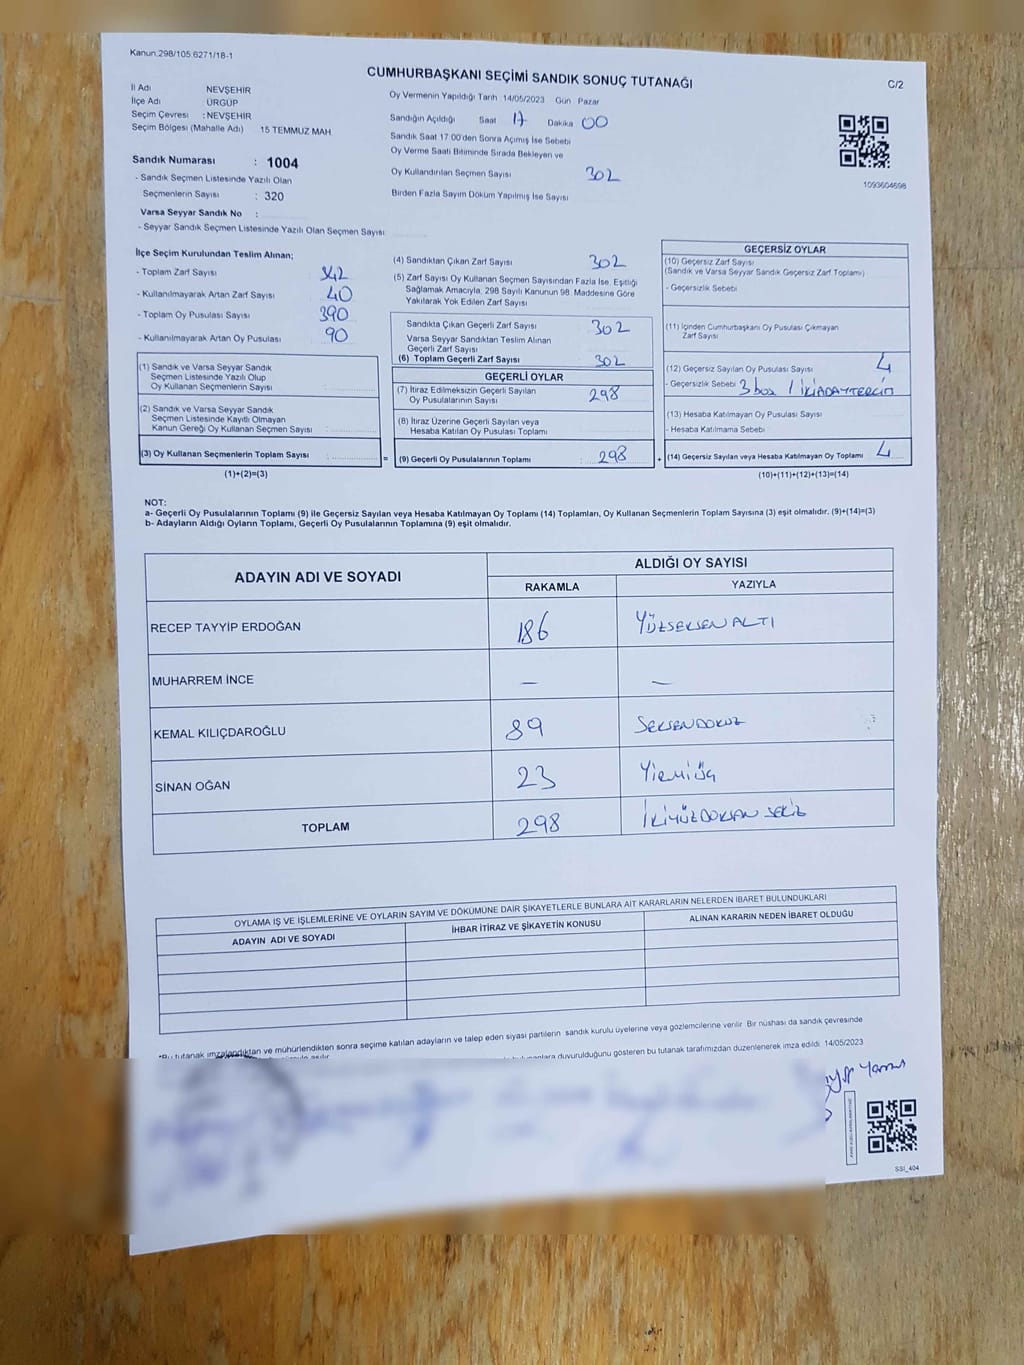 Kanun:298/105.6271/18-1
CUMHURBAŞKANI SEÇİMİ SANDIK SONUÇ TUTANAĞI
C/2
İl Adı NEVŞEHİR
İlçe Adı : ÜRGÜP
Seçim Çevresi : NEVŞEHİR
Seçim Bölgesi (Mahalle Adı) 15 TEMMUZ MAH.
Sandık Numarası : 1004
- Sandık Seçmen Listesinde Yazılı Olan
Seçmenlerin Sayısı : 320
Varsa Seyyar Sandık No :
- Seyyar Sandık Seçmen Listesinde Yazılı Olan Seçmen Sayısı:
Oy Vermenin Yapıldığı Tarih 14/05/2023 Gün Pazar
Sandığın Açıldığı Saat 17 Dakika 00
Sandık Saat 17:00'den Sonra Açımış İse Sebebi
Oy Verme Saati Bitiminde Sırada Bekleyen ve
Oy Kullandırılan Seçmen Sayısı 302
Birden Fazla Sayım Döküm Yapılmış İse Sayısı
1093604698
İlçe Seçim Kurulundan Teslim Alınan;
- Toplam Zarf Sayısı 342
- Kullanılmayarak Artan Zarf Sayısı 40
- Toplam Oy Pusulası Sayısı 390
- Kullanılmayarak Artan Oy Pusulası 90
(1) Sandık ve Varsa Seyyar Sandık
Seçmen Listesinde Yazılı Olup
Oy Kullanan Seçmenlerin Sayısı :
(2) Sandık ve Varsa Seyyar Sandık
Seçmen Listesinde Kayıtlı Olmayan
Kanun Gereği Oy Kullanan Seçmen Sayısı :
(3) Oy Kullanan Seçmenlerin Toplam Sayısı :
(1)+(2)=(3)
(4) Sandıktan Çıkan Zarf Sayısı 302
(5) Zarf Sayısı Oy Kullanan Seçmen Sayısından Fazla İse, Eşitliği
Sağlamak Amacıyla, 298 Sayılı Kanunun 98. Maddesine Göre
Yakılarak Yok Edilen Zarf Sayısı
Sandıkta Çıkan Geçerli Zarf Sayısı 302
Varsa Seyyar Sandıktan Teslim Alınan
Geçerli Zarf Sayısı
(6) Toplam Geçerli Zarf Sayısı 302
GEÇERLİ OYLAR
(7) İtiraz Edilmeksizin Geçerli Sayılan
Oy Pusulalarının Sayısı 298
(8) İtiraz Üzerine Geçerli Sayılan veya
Hesaba Katılan Oy Pusulası Toplamı
= (9) Geçerli Oy Pusulalarının Toplamı 298
GEÇERSİZ OYLAR
(10) Geçersiz Zarf Sayısı
(Sandık ve Varsa Seyyar Sandık Geçersiz Zarf Toplamı)
- Geçersizlik Sebebi
(11) İçinden Cumhurbaşkanı Oy Pusulası Çıkmayan
Zarf Sayısı
(12) Geçersiz Sayılan Oy Pusulası Sayısı 4
- Geçersizlik Sebebi 3 boş 1 İKİ ADAY TERCİH
(13) Hesaba Katılmayan Oy Pusulası Sayısı
- Hesaba Katılmama Sebebi
+ (14) Geçersiz Sayılan veya Hesaba Katılmayan Oy Toplamı 4
(10)+(11)+(12)+(13)=(14)
NOT:
a- Geçerli Oy Pusulalarının Toplamı (9) ile Geçersiz Sayılan veya Hesaba Katılmayan Oy Toplamı (14) Toplamları, Oy Kullanan Seçmenlerin Toplam Sayısına (3) eşit olmalıdır. (9)+(14)=(3)
b- Adayların Aldığı Oyların Toplamı, Geçerli Oy Pusulalarının Toplamına (9) eşit olmalıdır.
ADAYIN ADI VE SOYADI
ALDIĞI OY SAYISI
RAKAMLA YAZIYLA
RECEP TAYYİP ERDOĞAN 186 YÜZSEKSEN ALTI
MUHARREM İNCE — —
KEMAL KILIÇDAROĞLU 89 SEKSENDOKUZ
SİNAN OĞAN 23 Yirmi üç
TOPLAM 298 İKİYÜZDOKSAN SEKİZ
OYLAMA İŞ VE İŞLEMLERİNE VE OYLARIN SAYIM VE DÖKÜMÜNE DAİR ŞİKAYETLERLE BUNLARA AİT KARARLARIN NELERDEN İBARET BULUNDUKLARI
ADAYIN ADI VE SOYADI
İHBAR İTİRAZ VE ŞİKAYETİN KONUSU
ALINAN KARARIN NEDEN İBARET OLDUĞU
*Bu tutanak imzalandıktan ve mühürlendikten sonra seçime katılan adayların ve talep eden siyasi partilerin sandık kurulu üyelerine veya gözlemcilerine verilir. Bir nüshası da sandık çevresinde
duyurulduğunu gösteren bu tutanak tarafımızdan düzenlenerek imza edildi. 14/05/2023
SSI_404